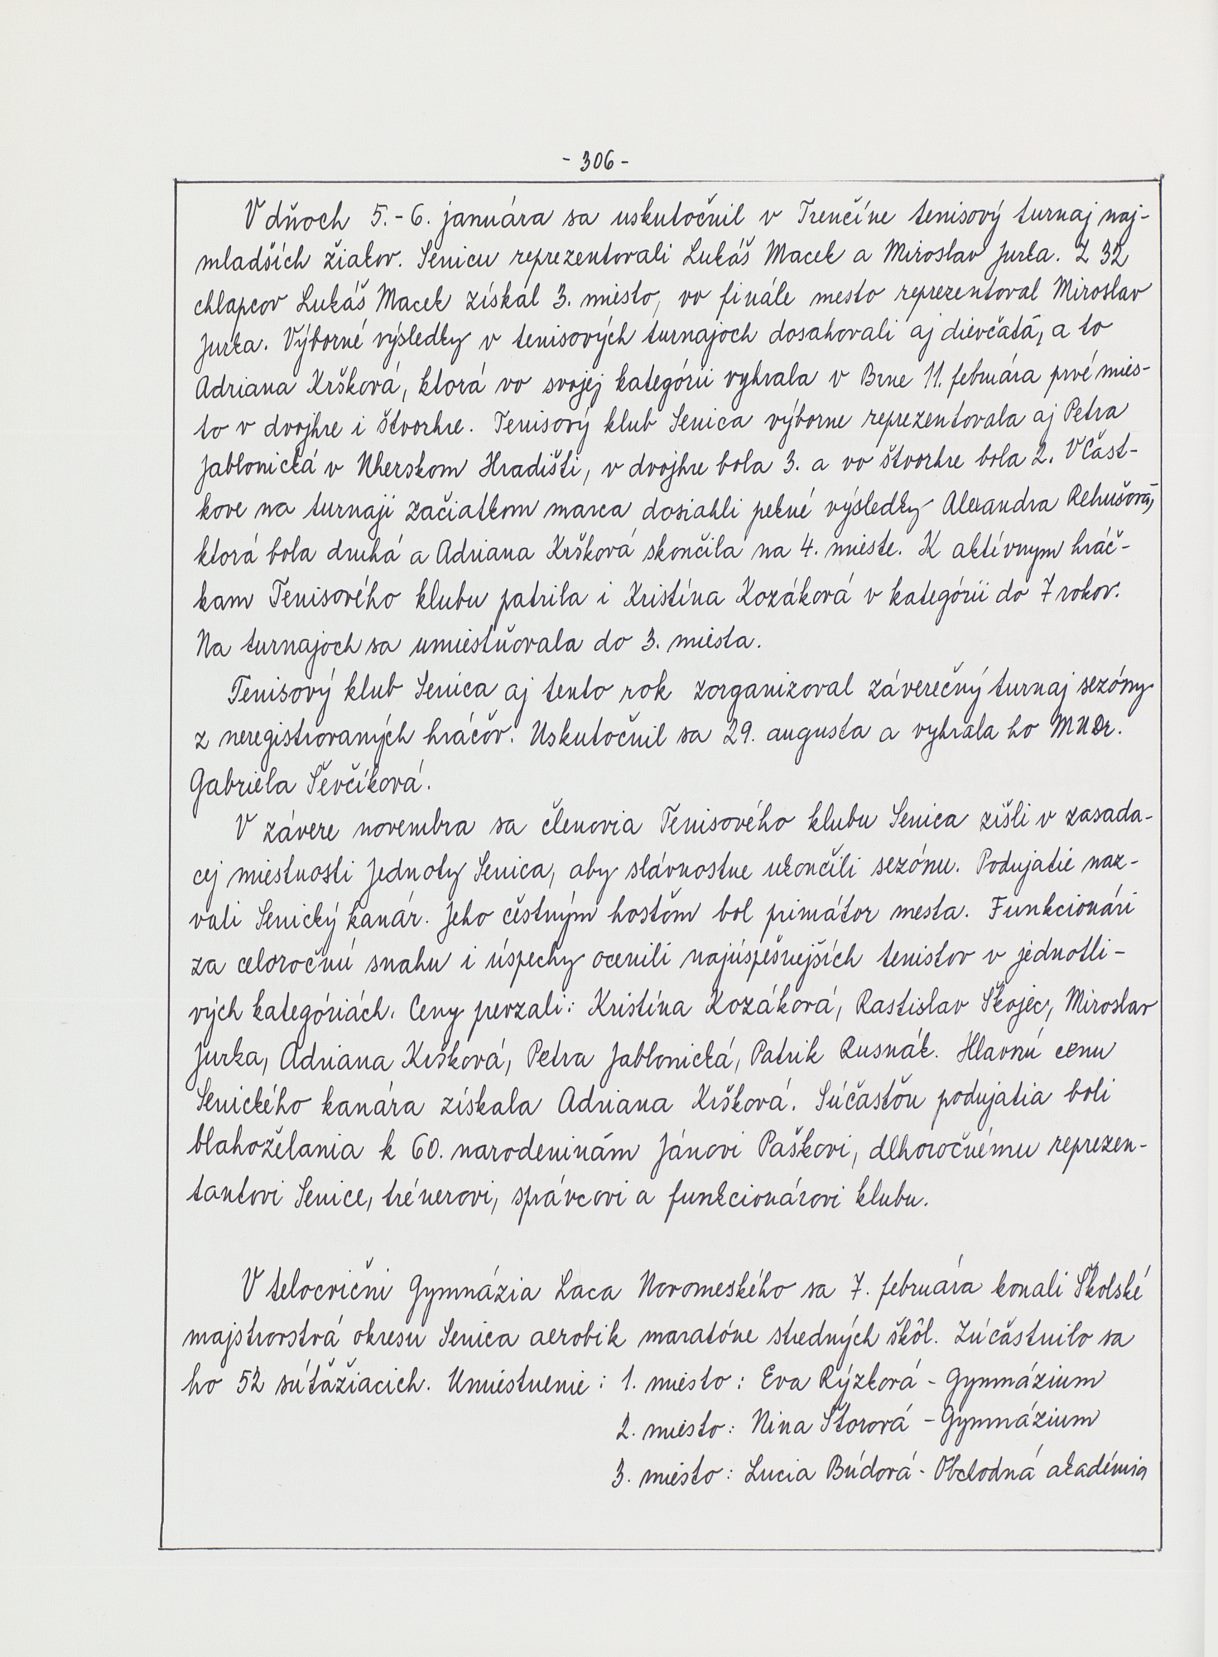 - 306 -
V dňoch 5. - 6. januára sa uskutočnil v Trenčíne tenisový turnaj naj-
mladších žiakov. Senicu reprezentovali Lukáš Macek a Miroslav Jurka. Z 32
chlapcov Lukáš Macek získal 3. miesto, vo finále mesto reprezentoval Miroslav
Jurka. Výborné výsledky v tenisových turnajoch dosahovali aj dievčatá, a to
Adriana Kršková, ktorá vo svojej kategórii vyhrala v Brne 11. februára prvé mies-
to v dvojhre i štvorhre. Tenisový klub Senica výborne reprezentovala aj Petra
Jablonická v Uherskom Hradišti, v dvojhre bola 3. a vo štvorhre bola 2. V Část-
kove na turnaji začiatkom marca dosiahli pekné výsledky Alexandra Rehušová,
ktorá bola druhá a Adriana Kršková skončila na 4. mieste. K aktívnym hráč-
kam Tenisového klubu patrila i Kristína Kozáková v kategórii do 7 rokov.
Na turnajoch sa umiestňovala do 3. miesta.
Tenisový klub Senica aj tento rok zorganizoval záverečný turnaj sezóny
z neregistrovaných hráčov. Uskutočnil sa 29. augusta a vyhrala ho MUDr.
Gabriela Ševčíková.
V závere novembra sa členovia Tenisového klubu Senica zišli v zasada-
cej miestnosti Jednoty Senica, aby slávnostne ukončili sezónu. Podujatie naz-
vali Senický kanár. Jeho čestným hosťom bol primátor mesta. Funkcionári
za celoročnú snahu i úspechy ocenili najúspešnejších tenistov v jednotli-
vých kategóriách. Ceny prevzali: Kristína Kozáková, Rastislav Škojec, Miroslav
Jurka, Adriana Kršková, Petra Jablonická, Patrik Rusnák. Hlavnú cenu
Senického kanára získala Adriana Kršková. Súčasťou podujatia boli
blahoželania k 60. narodeninám Jánovi Paškovi, dlhoročnému reprezen-
tantovi Senice, trénerovi, správcovi a funkcionárovi klubu.
V telocvični Gymnázia Laca Novomeského sa 7. februára konali Školské
majstrovstvá okresu Senica aerobik maratóne stredných škôl. Zúčastnilo sa
ho 52 súťažiacich. Umiestnenie: 1. miesto: Eva Rýzková - Gymnázium
2. miesto: Nina Štorová - Gymnázium
3. miesto: Lucia Búdová - Obchodná akadémia